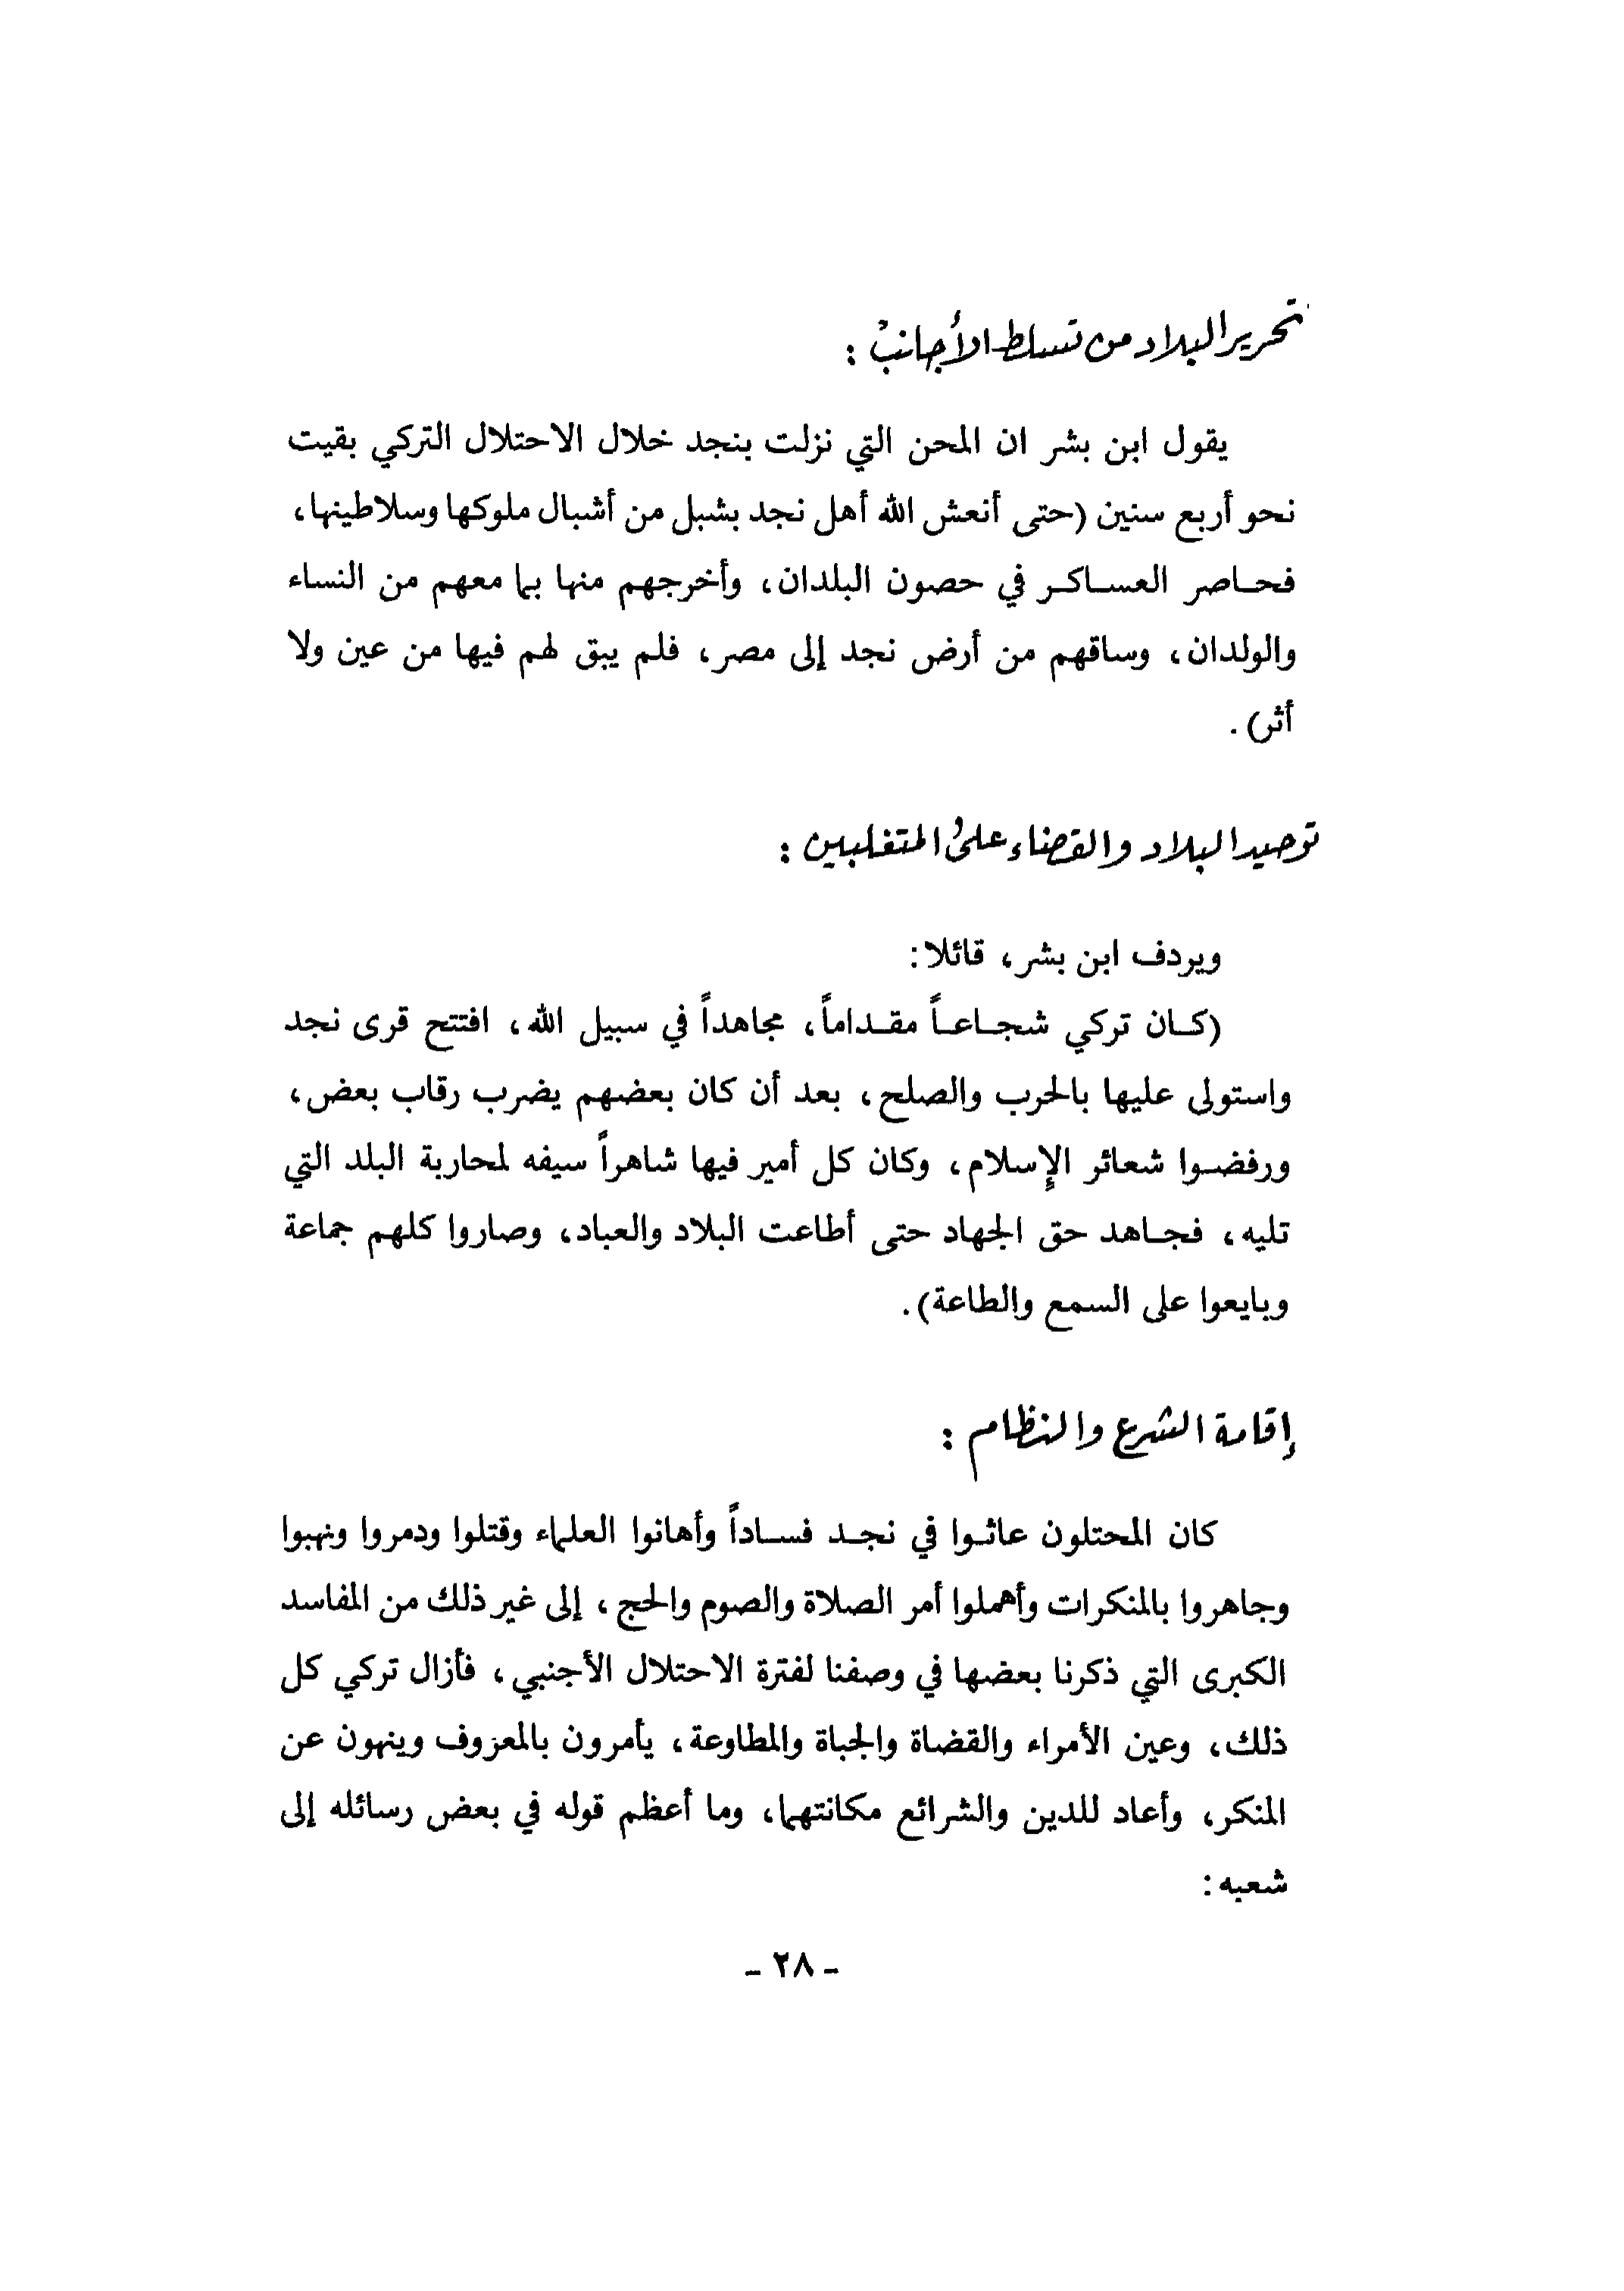 تحرير البلاد من تسلط الأجانب :
يقول ابن بشر ان المحن التي نزلت بنجد خلال الاحتلال التركي بقيت
نحو أربع سنين (حتى أنعش الله أهل نجد بشبل من أشبال ملوكها وسلاطينها،
فحاصر العساكر في حصون البلدان، وأخرجهم منها بما معهم من النساء
والولدان، وساقهم من أرض نجد إلى مصر، فلم يبق لهم فيها من عين ولا
أثر).
توحيد البلاد والقضاء على المتغلبين :
ويردف ابن بشر، قائلا:
(كان تركي شجاعاً مقداماً، مجاهداً في سبيل الله، افتتح قرى نجد
واستولى عليها بالحرب والصلح، بعد أن كان بعضهم يضرب رقاب بعض،
ورفضوا شعائر الإسلام، وكان كل أمير فيها شاهراً سيفه لمحاربة البلد التي
تليه، فجاهد حق الجهاد حتى أطاعت البلاد والعباد، وصاروا كلهم جماعة
وبايعوا على السمع والطاعة).
إقامة الشرع والنظام :
كان المحتلون عاثوا في نجد فساداً وأهانوا العلماء وقتلوا ودمروا ونهبوا
وجاهروا بالمنكرات وأهملوا أمر الصلاة والصوم والحج، إلى غير ذلك من المفاسد
الكبرى التي ذكرنا بعضها في وصفنا لفترة الاحتلال الأجنبي، فأزال تركي كل
ذلك، وعين الأمراء والقضاة والجباة والمطاوعة، يأمرون بالمعزوف وينهون عن
المنكر، وأعاد للدين والشرائع مكانتهما، وما أعظم قوله في بعض رسائله إلى
شعبه:
- ٢٨ -